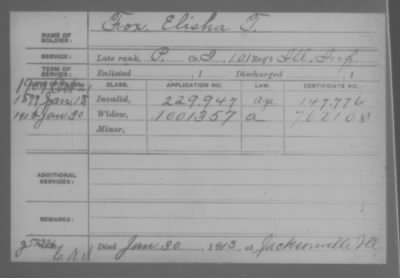 NAME OF SOLDIER: Fox, Elisha T.
SERVICE: Late rank, P. Co I, 101 Reg't Ill, Inf.
TERM OF SERVICE: Enlisted , 1 Discharged , 1
CLASS. APPLICATION NO. LAW. CERTIFICATE NO.
Jan 18 Invalid, 229.947 147.776
Jan 30 Widow, 1001357 a 762108
Minor,
ADDITIONAL SERVICES:
REMARKS:
Died Jan 30 1913, at Jacksonville Ill